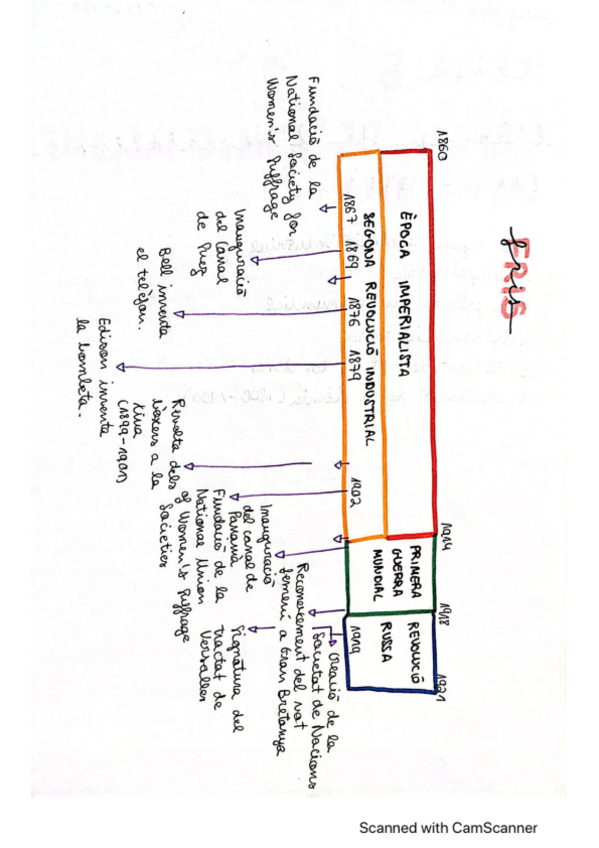 FRIS
fris
1860
1914
1918
1921
ÈPOCA IMPERIALISTA
SEGONA REVOLUCIÓ INDUSTRIAL
PRIMERA
GUERRA
MUNDIAL
REVOLUCIÓ
RUSSA
1867
1869
1876
1879
1902
1919
Fundació de la
National Society for
Women's Suffrage
Inauguració
del Canal
de Suez
Bell inventa
el telèfon.
Edison inventa
la bombeta.
Revolta dels
bòxers a la
Xina
(1899-1901)
Fundació de la
National Union
of Women's Suffrage
Societies
Inauguració
del canal de
Panamà
Reconeixement del vot
femení a Gran Bretanya
Creació de la
Societat de Nacions
Signatura del
tractat de
Versalles
Scanned with CamScanner